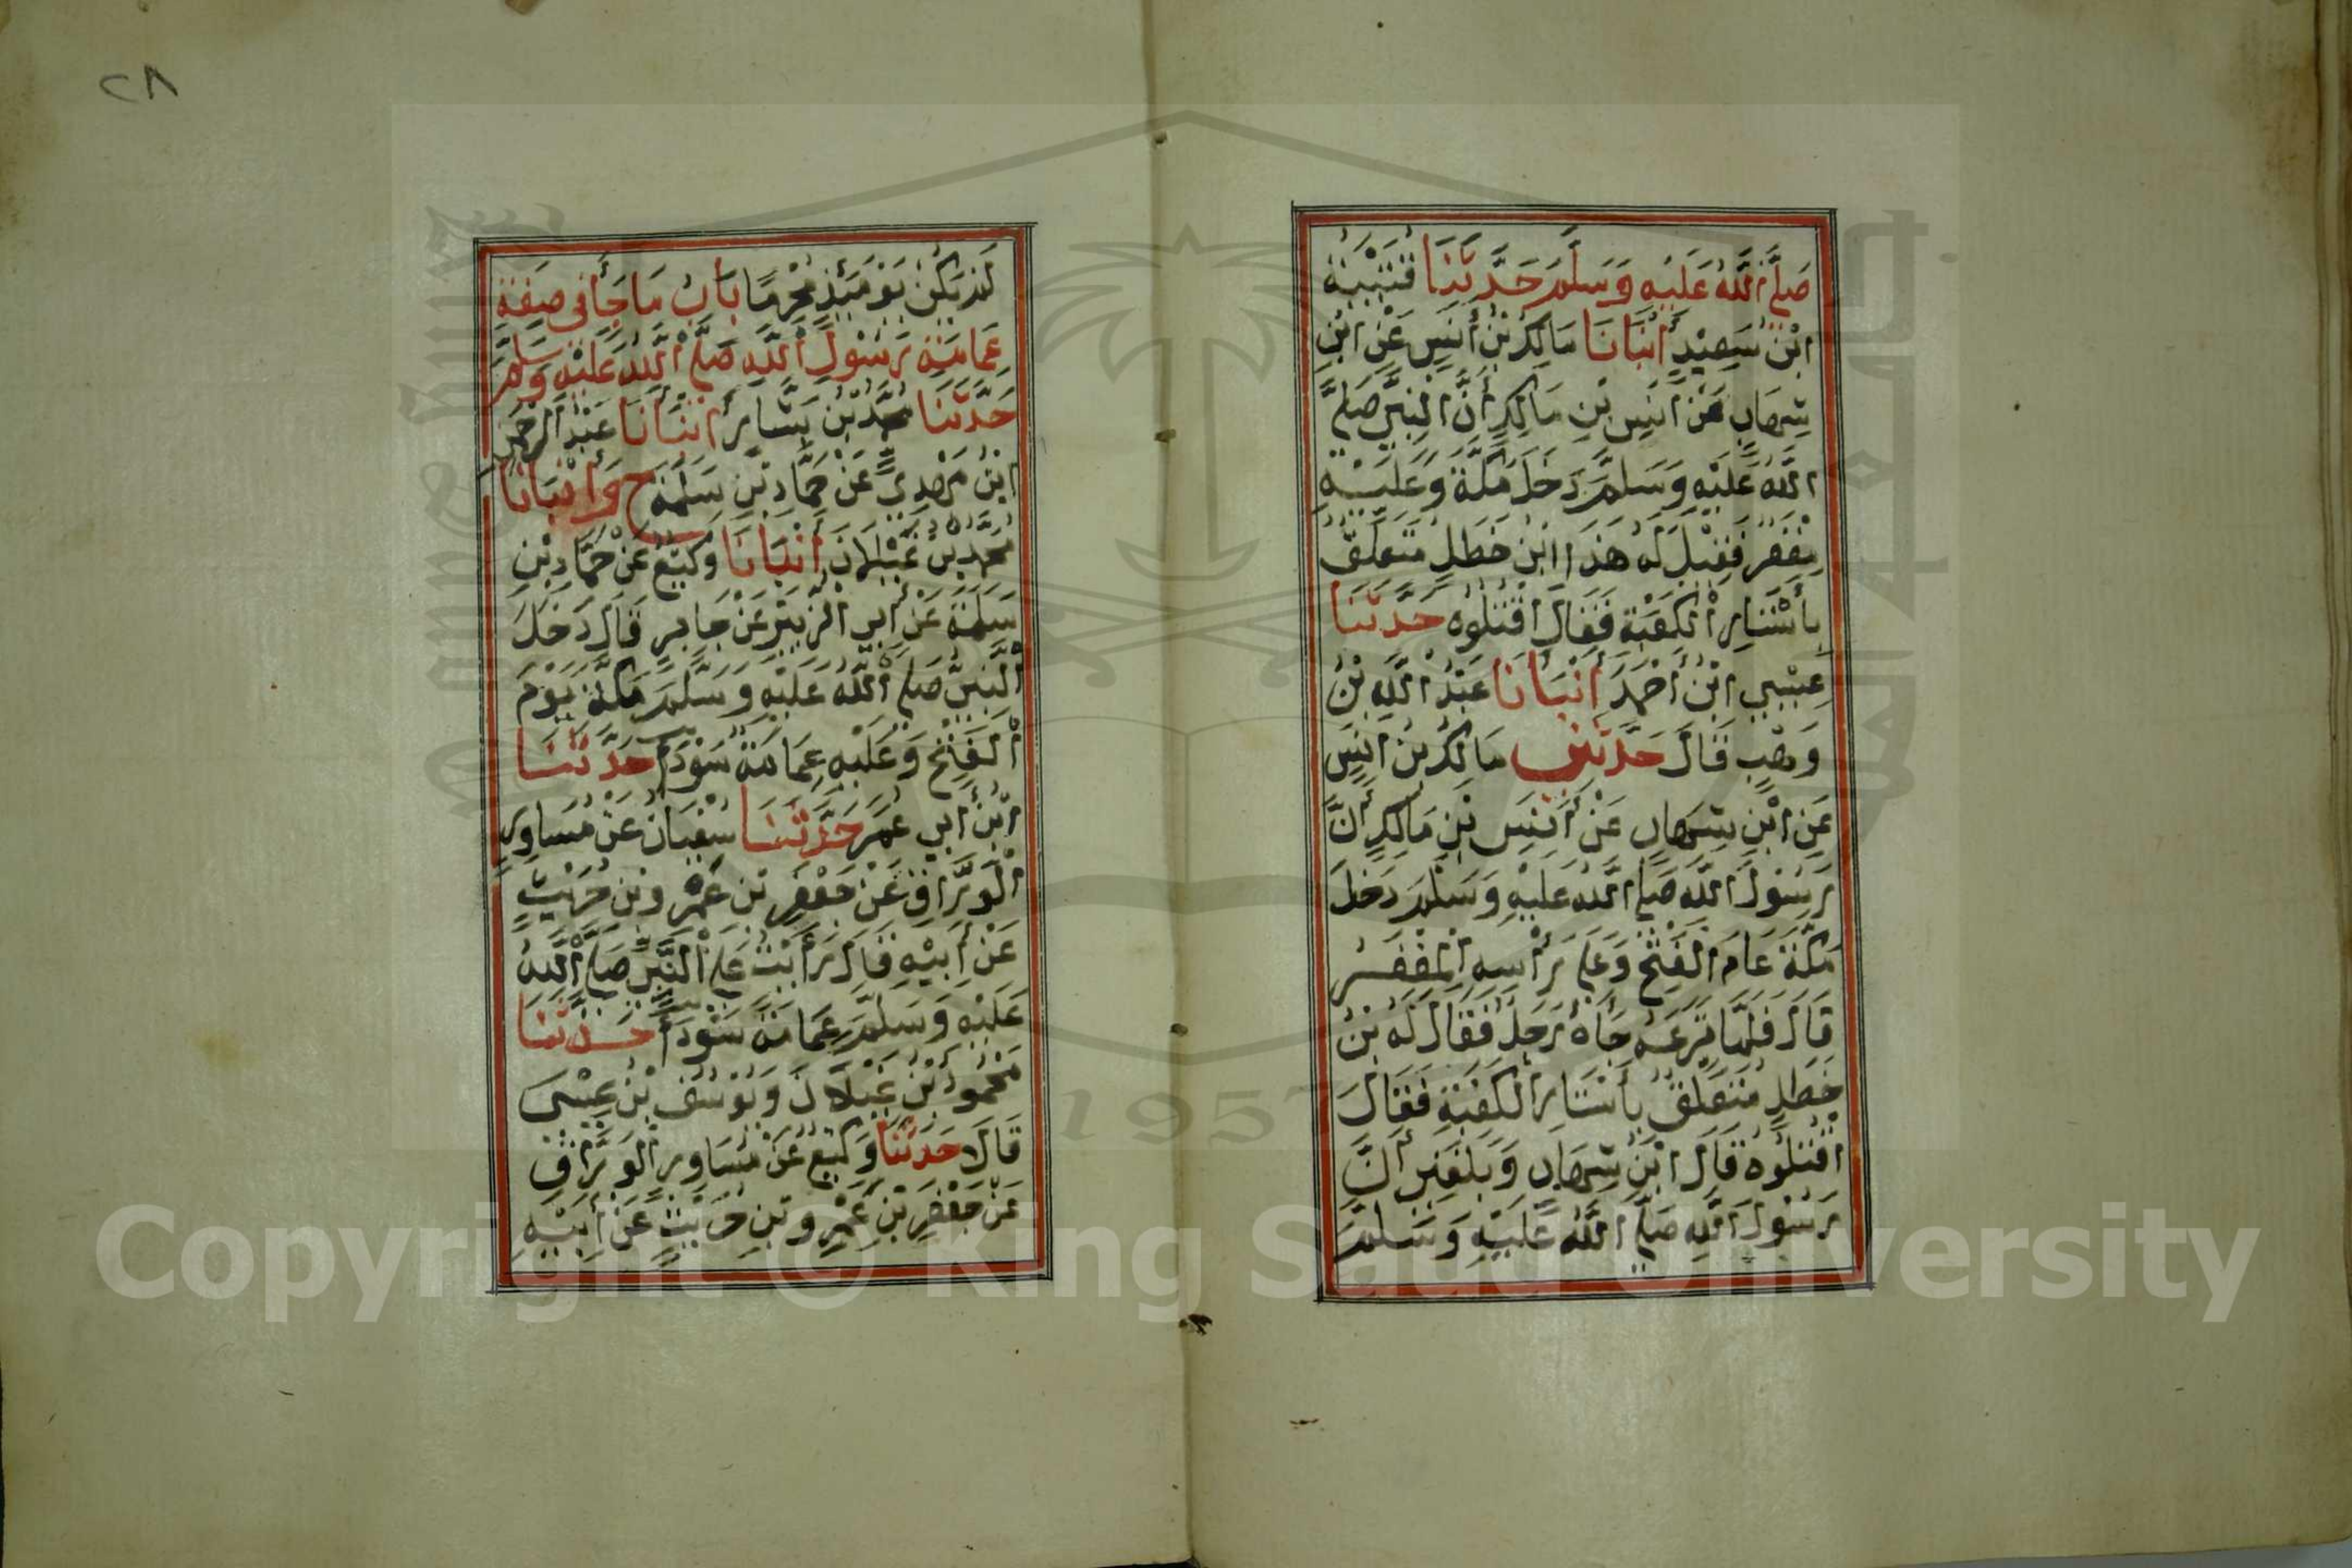 صَلَّى اللَّهُ عَلَيْهِ وَسَلَّمَ حَدَّثَنَا قُتَيْبَةُ
ابْنُ سَعِيْدٍ أَنْبَانَا مَالِكُ بْنُ أَنَسٍ عَنِ ابْنِ
شِهَابٍ عَنْ أَنَسِ بْنِ مَالِكٍ أَنَّ النَّبِيَّ صَلَّى
اللَّهُ عَلَيْهِ وَسَلَّمَ دَخَلَ مَكَّةَ وَعَلَيْهِ
مِغْفَرٌ فَقِيْلَ لَهُ هَذَا ابْنُ خَطَلٍ مُتَعَلِّقٌ
بِأَسْتَارِ الْكَعْبَةِ فَقَالَ اقْتُلُوْهُ حَدَّثَنَا
عِيْسَي ابْنُ أَحْمَدَ أَنْبَأَنَا عَبْدُ اللَّهِ بْنُ
وَهْبٍ قَالَ حَدَّثَنِي مَالِكُ بْنُ أَنَسٍ
عَنِ ابْنِ شِهَابٍ عَنْ أَنَسِ بْنِ مَالِكٍ أَنَّ
رَسُوْلَ اللَّهِ صَلَّى اللَّهُ عَلَيْهِ وَسَلَّمَ دَخَلَ
مَكَّةَ عَامَ الْفَتْحِ وَعَلَى رَأْسِهِ الْمِغْفَرُ
قَالَ فَلَمَّا نَزَعَهُ جَاهُ رَجُلٌ فَقَالَ لَهُ بْنُ
خَطَلٍ مُتَعَلِّقٌ بِأَسْتَارِ الْكَعْبَةِ فَقَالَ
اقْتُلُوْهُ قَالَ ابْنُ شِهَابٍ وَبَلَغَنِي أَنَّ
رَسُوْلَ اللَّهِ صَلَّى اللَّهُ عَلَيْهِ وَسَلَّمَ
٢٨
لَمْ يَكُنْ يَوْمَئِذٍ مُحْرِمًا بَابُ مَا جَأَ فِي صِفَةِ
عِمَامَةِ رَسُوْلِ اللَّهِ صَلَّى اللَّهُ عَلَيْهِ وَسَلَّمَ
حَدَّثَنَا مُحَمَّدُ بْنُ بَشَّارٍ أَنْبَأَنَا عَبْدُ الرَّحْمَنِ
ابْنُ مَهْدِيٍّ عَنْ حَمَّادِ بْنِ سَلَمَةَ ح وَأَنْبَانَا
مَحْمُودُ بْنُ غَيْلَانَ أَنْبَانَا وَكِيْعٌ عَنْ حَمَّادِ بْنِ
سَلَمَةَ عَنْ أَبِي الزُّبَيْرِ عَنْ جَابِرٍ قَالَ دَخَلَ
النَّبِيُّ صَلَّى اللَّهُ عَلَيْهِ وَسَلَّمَ مَكَّةَ يَوْمَ
الْفَتْحِ وَعَلَيْهِ عِمَامَةٌ سَوْدَأُ حَدَّثَنَا
ابْنُ أَبِي عُمَرَ حَدَّثَنَا سُفْيَانُ عَنْ مُسَاوِرٍ
الْوَرَّاقِ عَنْ جَعْفَرِ بْنِ عَمْرِو بْنِ حُرَيْثٍ
عَنْ أَبِيْهِ قَالَ رَأَيْتُ عَلَى النَّبِيِّ صَلَّى اللَّهُ
عَلَيْهِ وَسَلَّمَ عِمَامَةً سَوْدَأَ حَدَّثَنَا
مَحْمُوْدُ بْنُ غَيْلَانَ وَيُوْسُفُ بْنُ عِيْسَى
قَالَا حَدَّثَنَا وَكِيْعٌ عَنْ مُسَاوِرٍ الْوَرَّاقِ
عَنْ جَعْفَرِ بْنِ عَمْرِو بْنِ حُرَيْثٍ عَنْ أَبِيْهِ
1957
Copyright © King Saud University